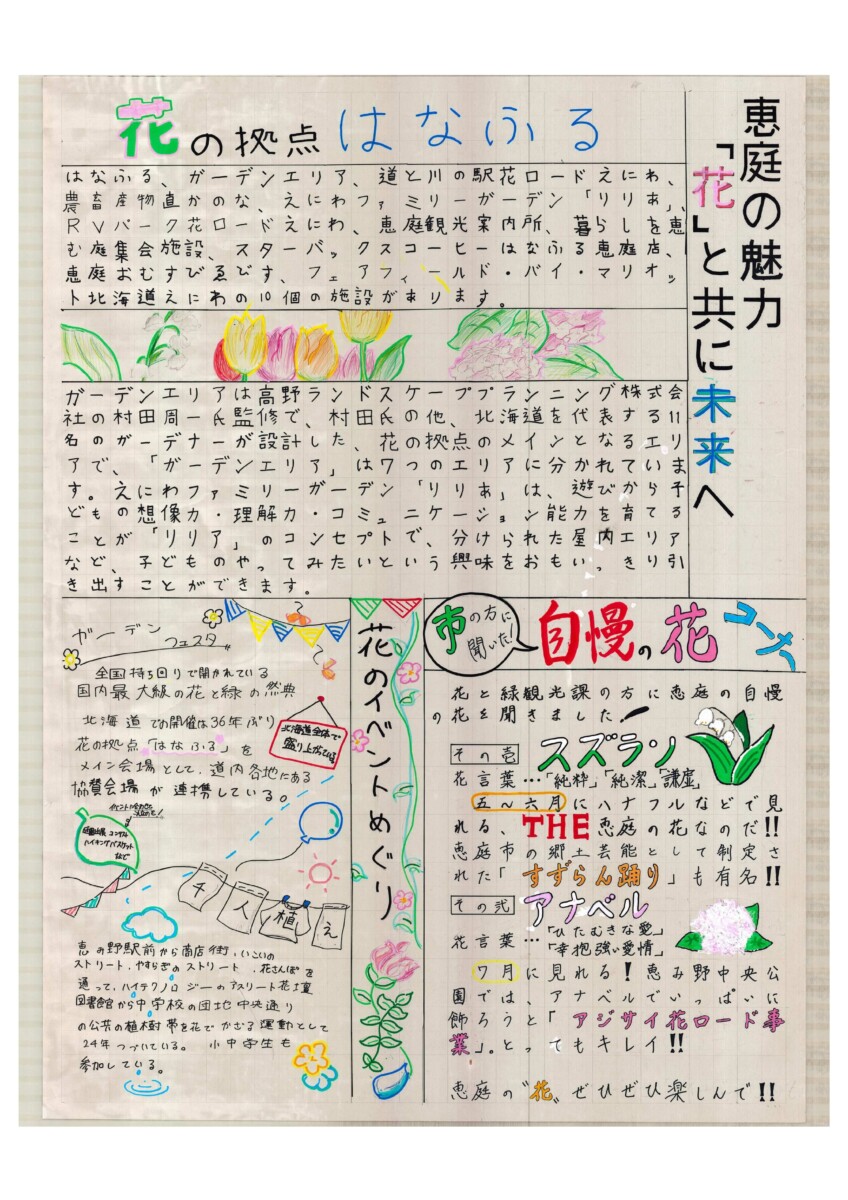 恵庭の魅力
「花」と共に未来へ
花の拠点はなふる
はなふる、ガーデンエリア、道と川の駅花ロードえにわ、
農畜産物直かのな、えにわファミリーガーデン「りりあ」、
RVパーク花ロードえにわ、恵庭観光案内所、暮らしを恵
む庭集会施設、スターバックスコーヒーはなふる恵庭店、
恵庭おむすびゑびす、フェアフィールド・バイ・マリオッ
ト北海道えにわの10個の施設があります。
ガーデンエリアは高野ランドスケーププランニング株式会
社の村田周一氏監修で、村田氏の他、北海道を代表する11
名のガーデナーが設計した、花の拠点のメインとなるエリ
アで、「ガーデンエリア」は7つのエリアに分かれていま
す。えにわファミリーガーデン「りりあ」は、遊びから子
どもの想像力・理解力・コミュニケーション能力を育てる
ことが「リリア」のコンセプトで、分けられた屋内エリア
など、子どものやってみたいという興味をおもいっきり引
き出すことができます。
花のイベントめぐり
ガーデン
フェスタ
全国持ち回りで開かれている
国内最大級の花と緑の祭典
北海道での開催は36年ぶり
花の拠点「はなふる」を
メイン会場として、道内各地にある
協賛会場が連携している。
北海道全体で
盛り上がっている
コンテスト
ハイキングバスケット
など
千人植え
恵の野駅前から商店街、いこいの
ストリート、やすらぎのストリート、花さんぽを
通って、ハイテクノロジーのアスリート花壇
図書館から中学校の団地中央通り
の公共の植樹帯を花でかざる運動として
24年つづいている。小中学生も
参加している。
市の方に
聞いた!
自慢の花コンペ
花と緑観光課の方に恵庭の自慢
の花を聞きました!
その壱 スズラン
花言葉…「純粋」「純潔」「謙虚」
五〜六月にハナフルなどで見
れる、THE恵庭の花なのだ!!
恵庭市の郷土芸能として制定さ
れた「すずらん踊り」も有名!!
その弐 アナベル
花言葉…「ひたむきな愛」
「辛抱強い愛情」
7月に見れる!恵み野中央公
園では、アナベルでいっぱいに
飾ろうと「アジサイ花ロード事
業」。とってもキレイ!!
恵庭の"花"ぜひぜひ楽しんで!!